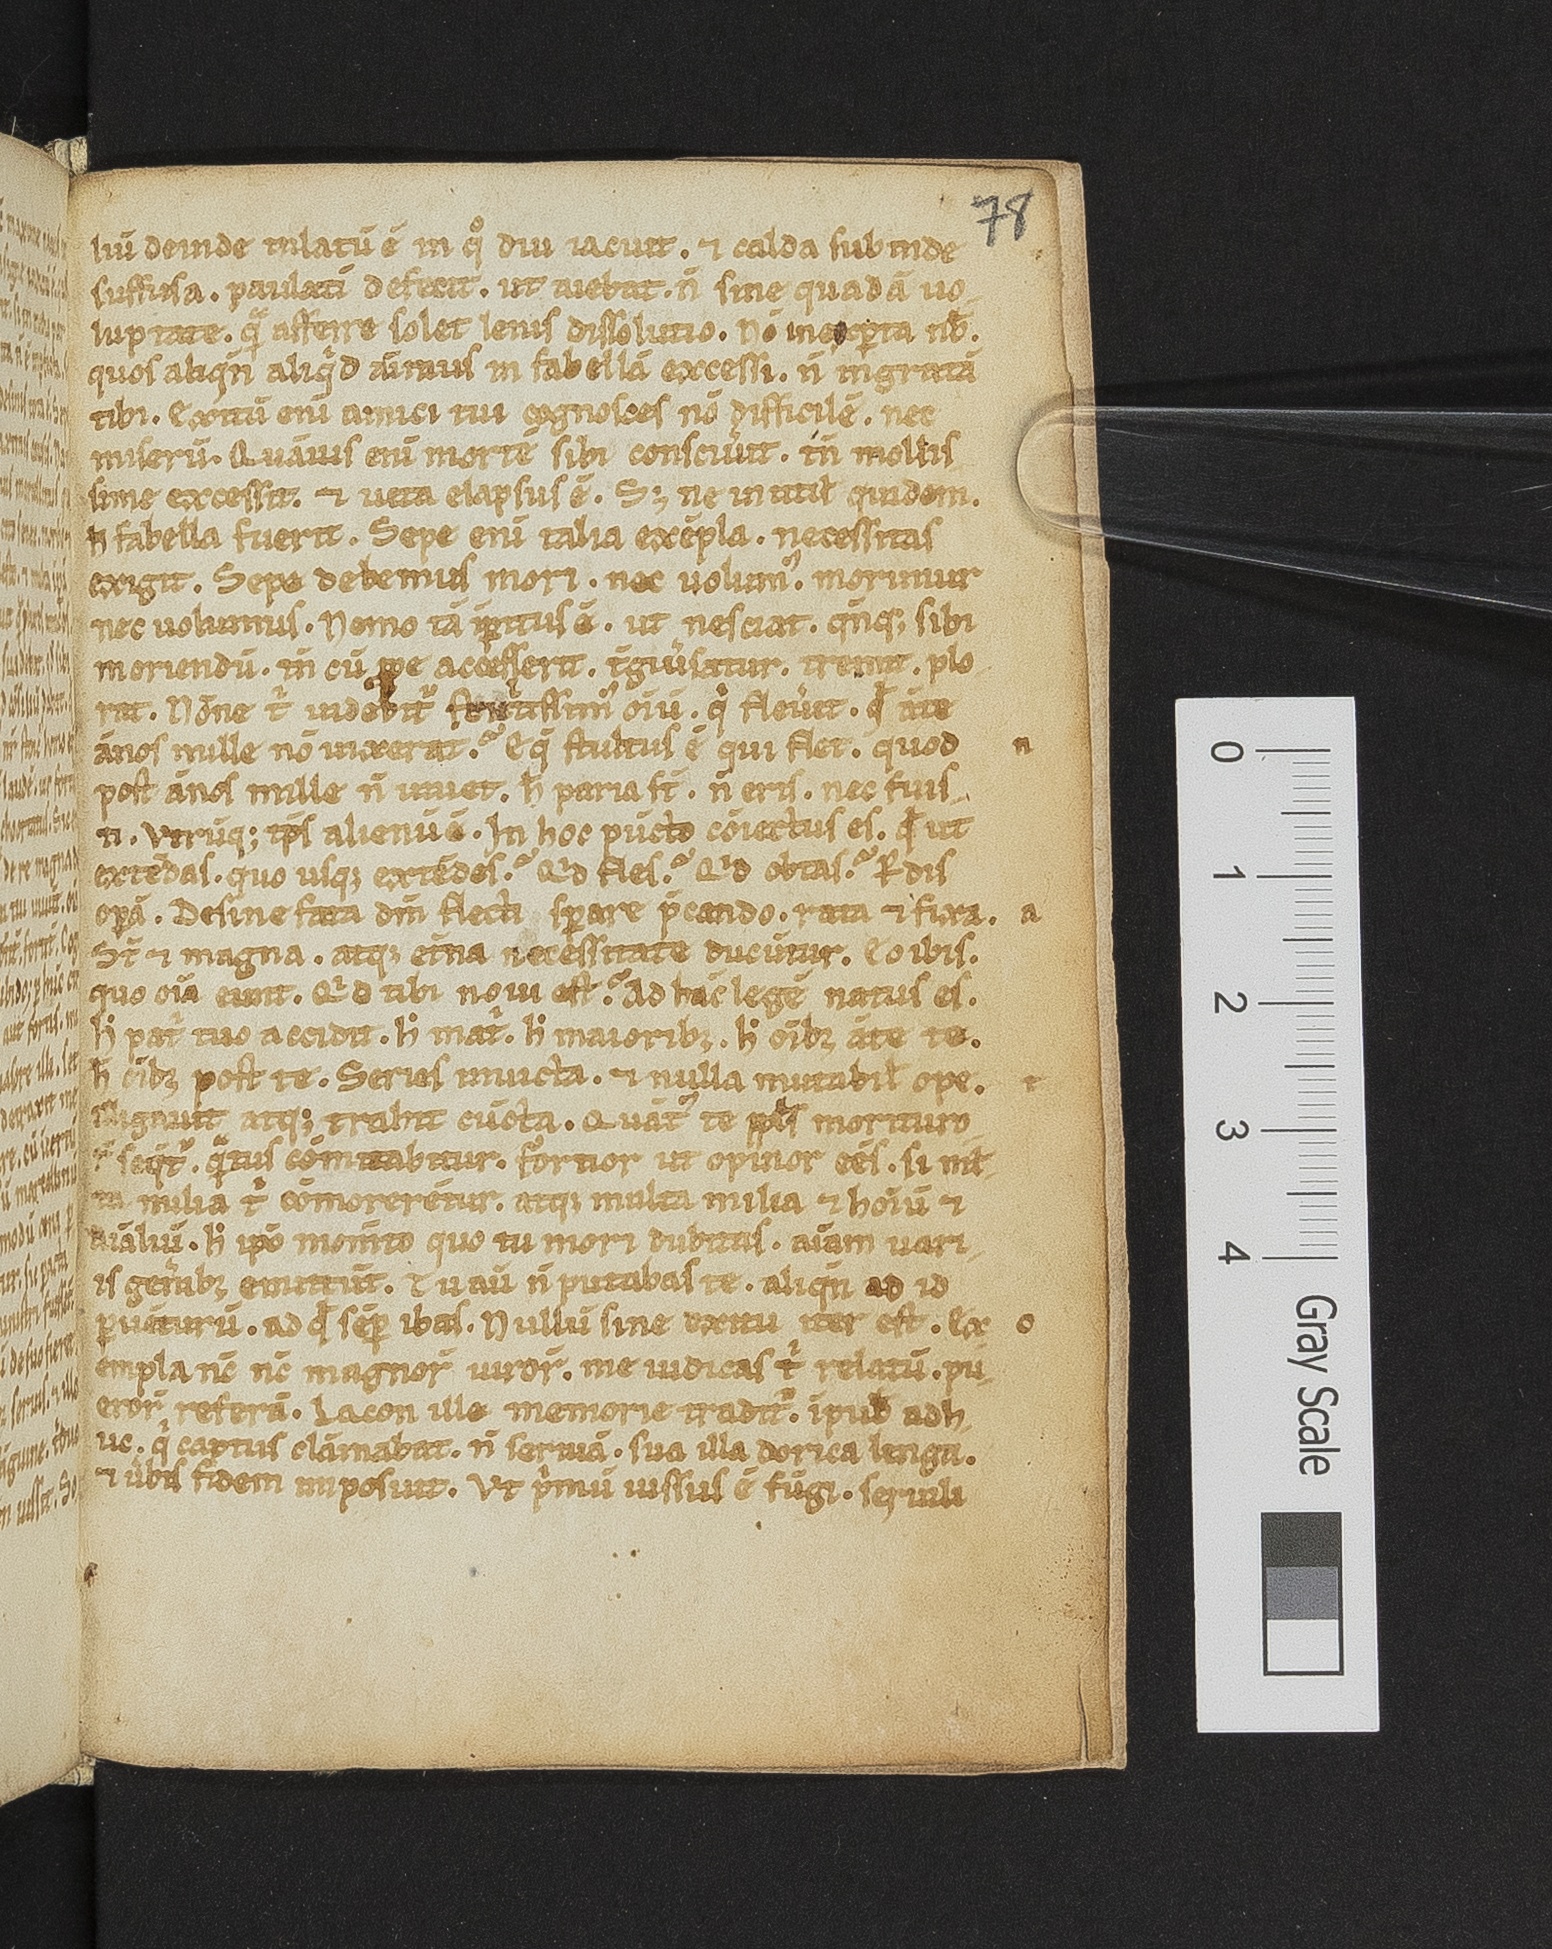 78
liū deinde inlatū ē in qͦ diu iacuit . ⁊ calda subinde
suffusa . paulatī defecit . ut aiebat . n̄ sine quadā uo
luptate . q̄ afferre solet lenis dissolutio . Nō inexꝑta nb̄ .
quos aliqn̄ aliqͥd aīmus in fabellā excessi . n̄ ingratā
tibi . Exitū enī amici tui cognosces nō difficilē . nec
miserū . Quāuis enī mortē sibi consciuit . tn̄ mollis
sime excessit . ⁊ uita elapsus ē . Sꝫ ne inutil̄ quidem .
h̄ fabella fuerit . Sepe enī talia exēpla . necessitas
exigit . Sepe debemus mori . nec uolumꝰ . morimur
nec uolumus . Nemo tā īꝑitus ē . ut nesciat . qn̄qꝫ sibi
moriendū . tn̄ cū ꝓpe accesserit . t̄giūsatur . tremit . plo
rat . Nōne tͥ uidebitͬ stultissimꝰ oīū . qͥ fleūit . qd̄ āte
ānos mille nō uixerat . Eqͥ stultus ē qui flet . quod
post ānos mille n̄ uiuet . h̄ paria st̄ . n̄ eris . nec fuis
ti . Vtrūqꝫ tp̄s alienū ē . In hoc pūcto cōiectus es . qd̄ ut
extēdas . quo usqꝫ extēdes . Qͥd fles . Qͥd obtas . Ꝑdis
oꝑā . Desine fata dm̄ flecti sꝑare p̄cando . rata ⁊ fixa .
St̄ ⁊ magna . atqꝫ et̄na necessitate ducūtur . Eo ibis .
quo oīa eunt . Qͥd tibi noui est . Ad hāc legē natus es .
hͦ patͥ tuo accidit . hͦ matͥ . hͦ maioribꝫ . hͦ oībꝫ āte te .
hͦ oībꝫ post te . Series inuicta . ⁊ nulla mutabil̄ ope .
illigauit atqꝫ trahit cūcta . Quātꝰ te ppl̄s morituro
seqͬ . qͣtus cōmitabitur . fortior ut opinor eēs . si ml̄
ta milia tͥ cōmorerētur . atqꝫ multa milia ⁊ hoīū ⁊
aīaliū . hͦ ipō momēto quo tu mori dubitas . aīam uari
is gen̄ibꝫ emittūt . Tu aū n̄ putabas te . aliqn̄ ad id
ꝑuēturū . ad qd̄ sēꝑ ibas . Nullū sine exitu iter est . Ex
empla nc̄ nc̄ magnoꝝ uiroꝝ . me iudicas tͥ relatū . pu
eroꝝ referā . Lacon ille memorie traditͬ . īpub̄ adh
uc . qͥ captus clāmabat . n̄ seruiā . sua illa dorica lingu .
⁊ ūbis fidem imposuit . Vt pͥmū iussus ē fūgi . seruili
n
a
t
o
0 1 2 3 4 Gray Scale